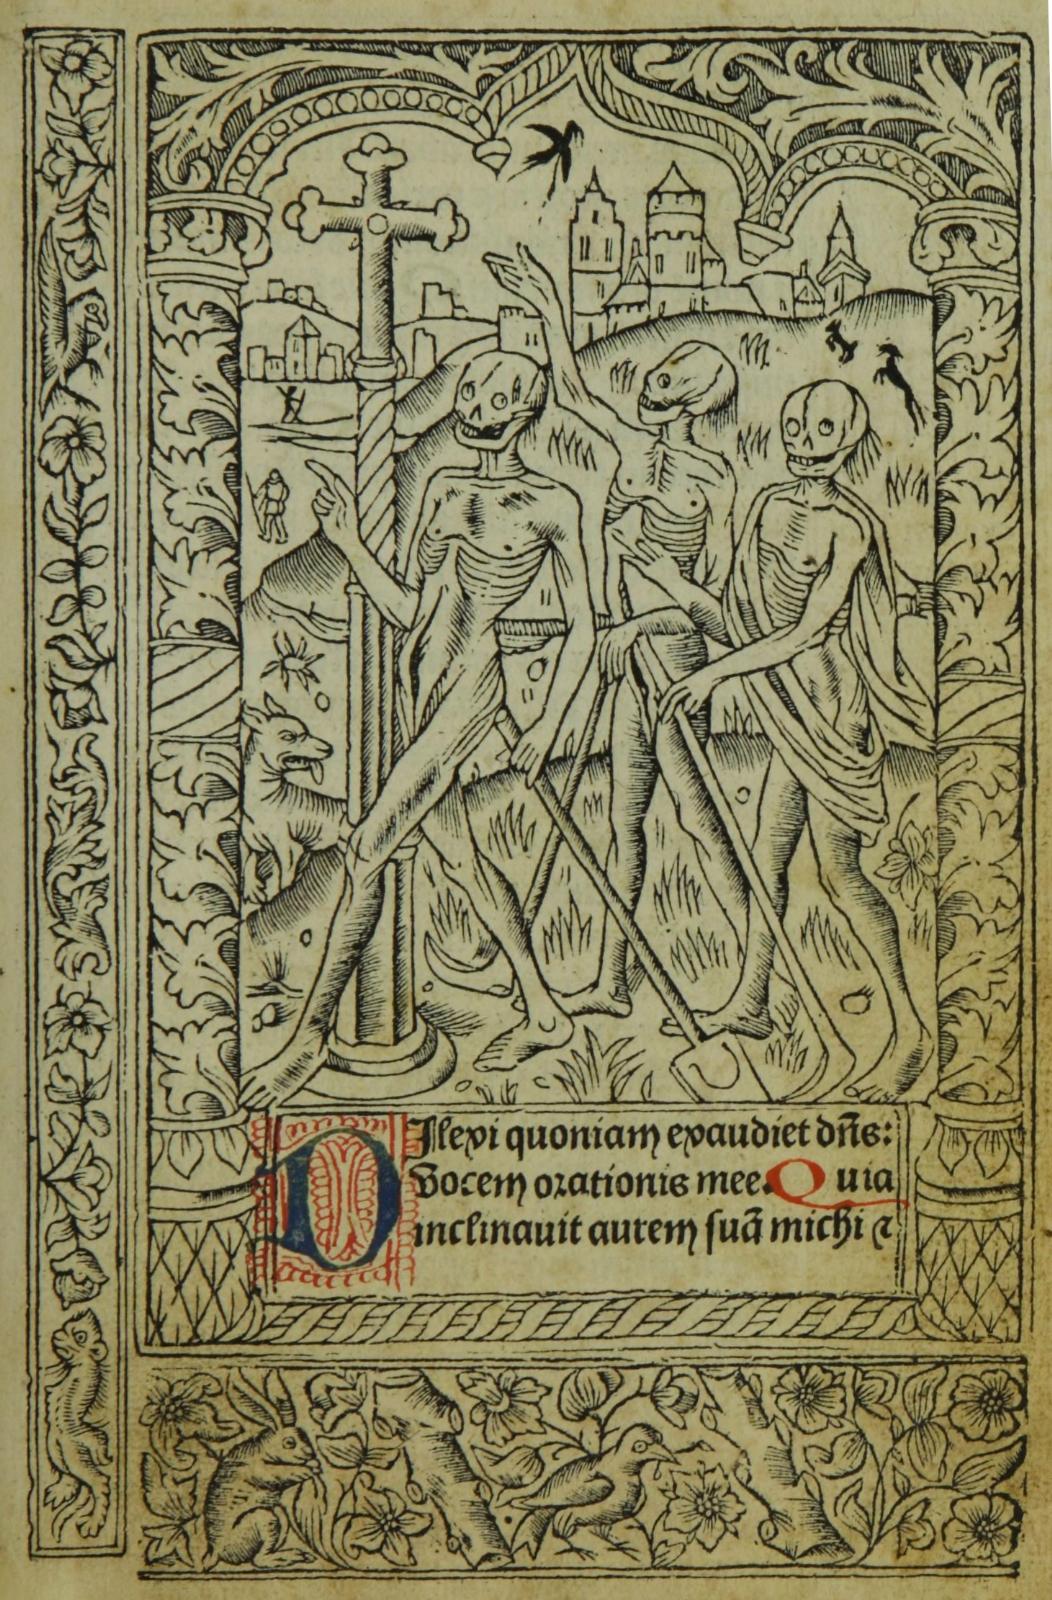 DIlexi quoniam exaudiet dn̄s:
vocem orationis mee. Quia
inclinauit aurem suā michi ⁊